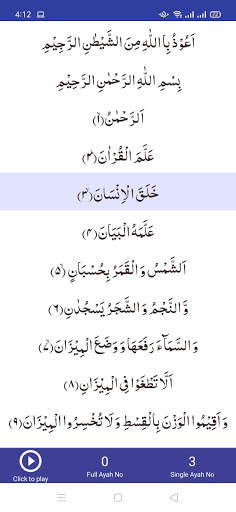 4:12
اَعُوْذُ بِااللّٰهِ مِنَ الشَّيْطٰنِ الرَّجِيْمِ
بِسْمِ اللّٰهِ الرَّحْمٰنِ الرَّحِيْمِ
اَلرَّحْمٰنُ (۱)
عَلَّمَ الْقُرْاٰنَ (۲)
خَلَقَ الْاِنْسَانَ (۳)
عَلَّمَهُ الْبَيَانَ (۴)
اَلشَّمْسُ وَ الْقَمَرُ بِحُسْبَانٍ (۵)
وَّ النَّجْمُ وَ الشَّجَرُ يَسْجُدٰنِ (۶)
وَ السَّمَآءَ رَفَعَهَا وَ وَضَعَ الْمِيْزَانَ (۷)
اَلَّا تَطْغَوْا فِی الْمِيْزَانِ (۸)
وَ اَقِيْمُوا الْوَزْنَ بِالْقِسْطِ وَ لَا تُخْسِرُوا الْمِيْزَانَ (۹)
Click to play
0
Full Ayah No
3
Single Ayah No